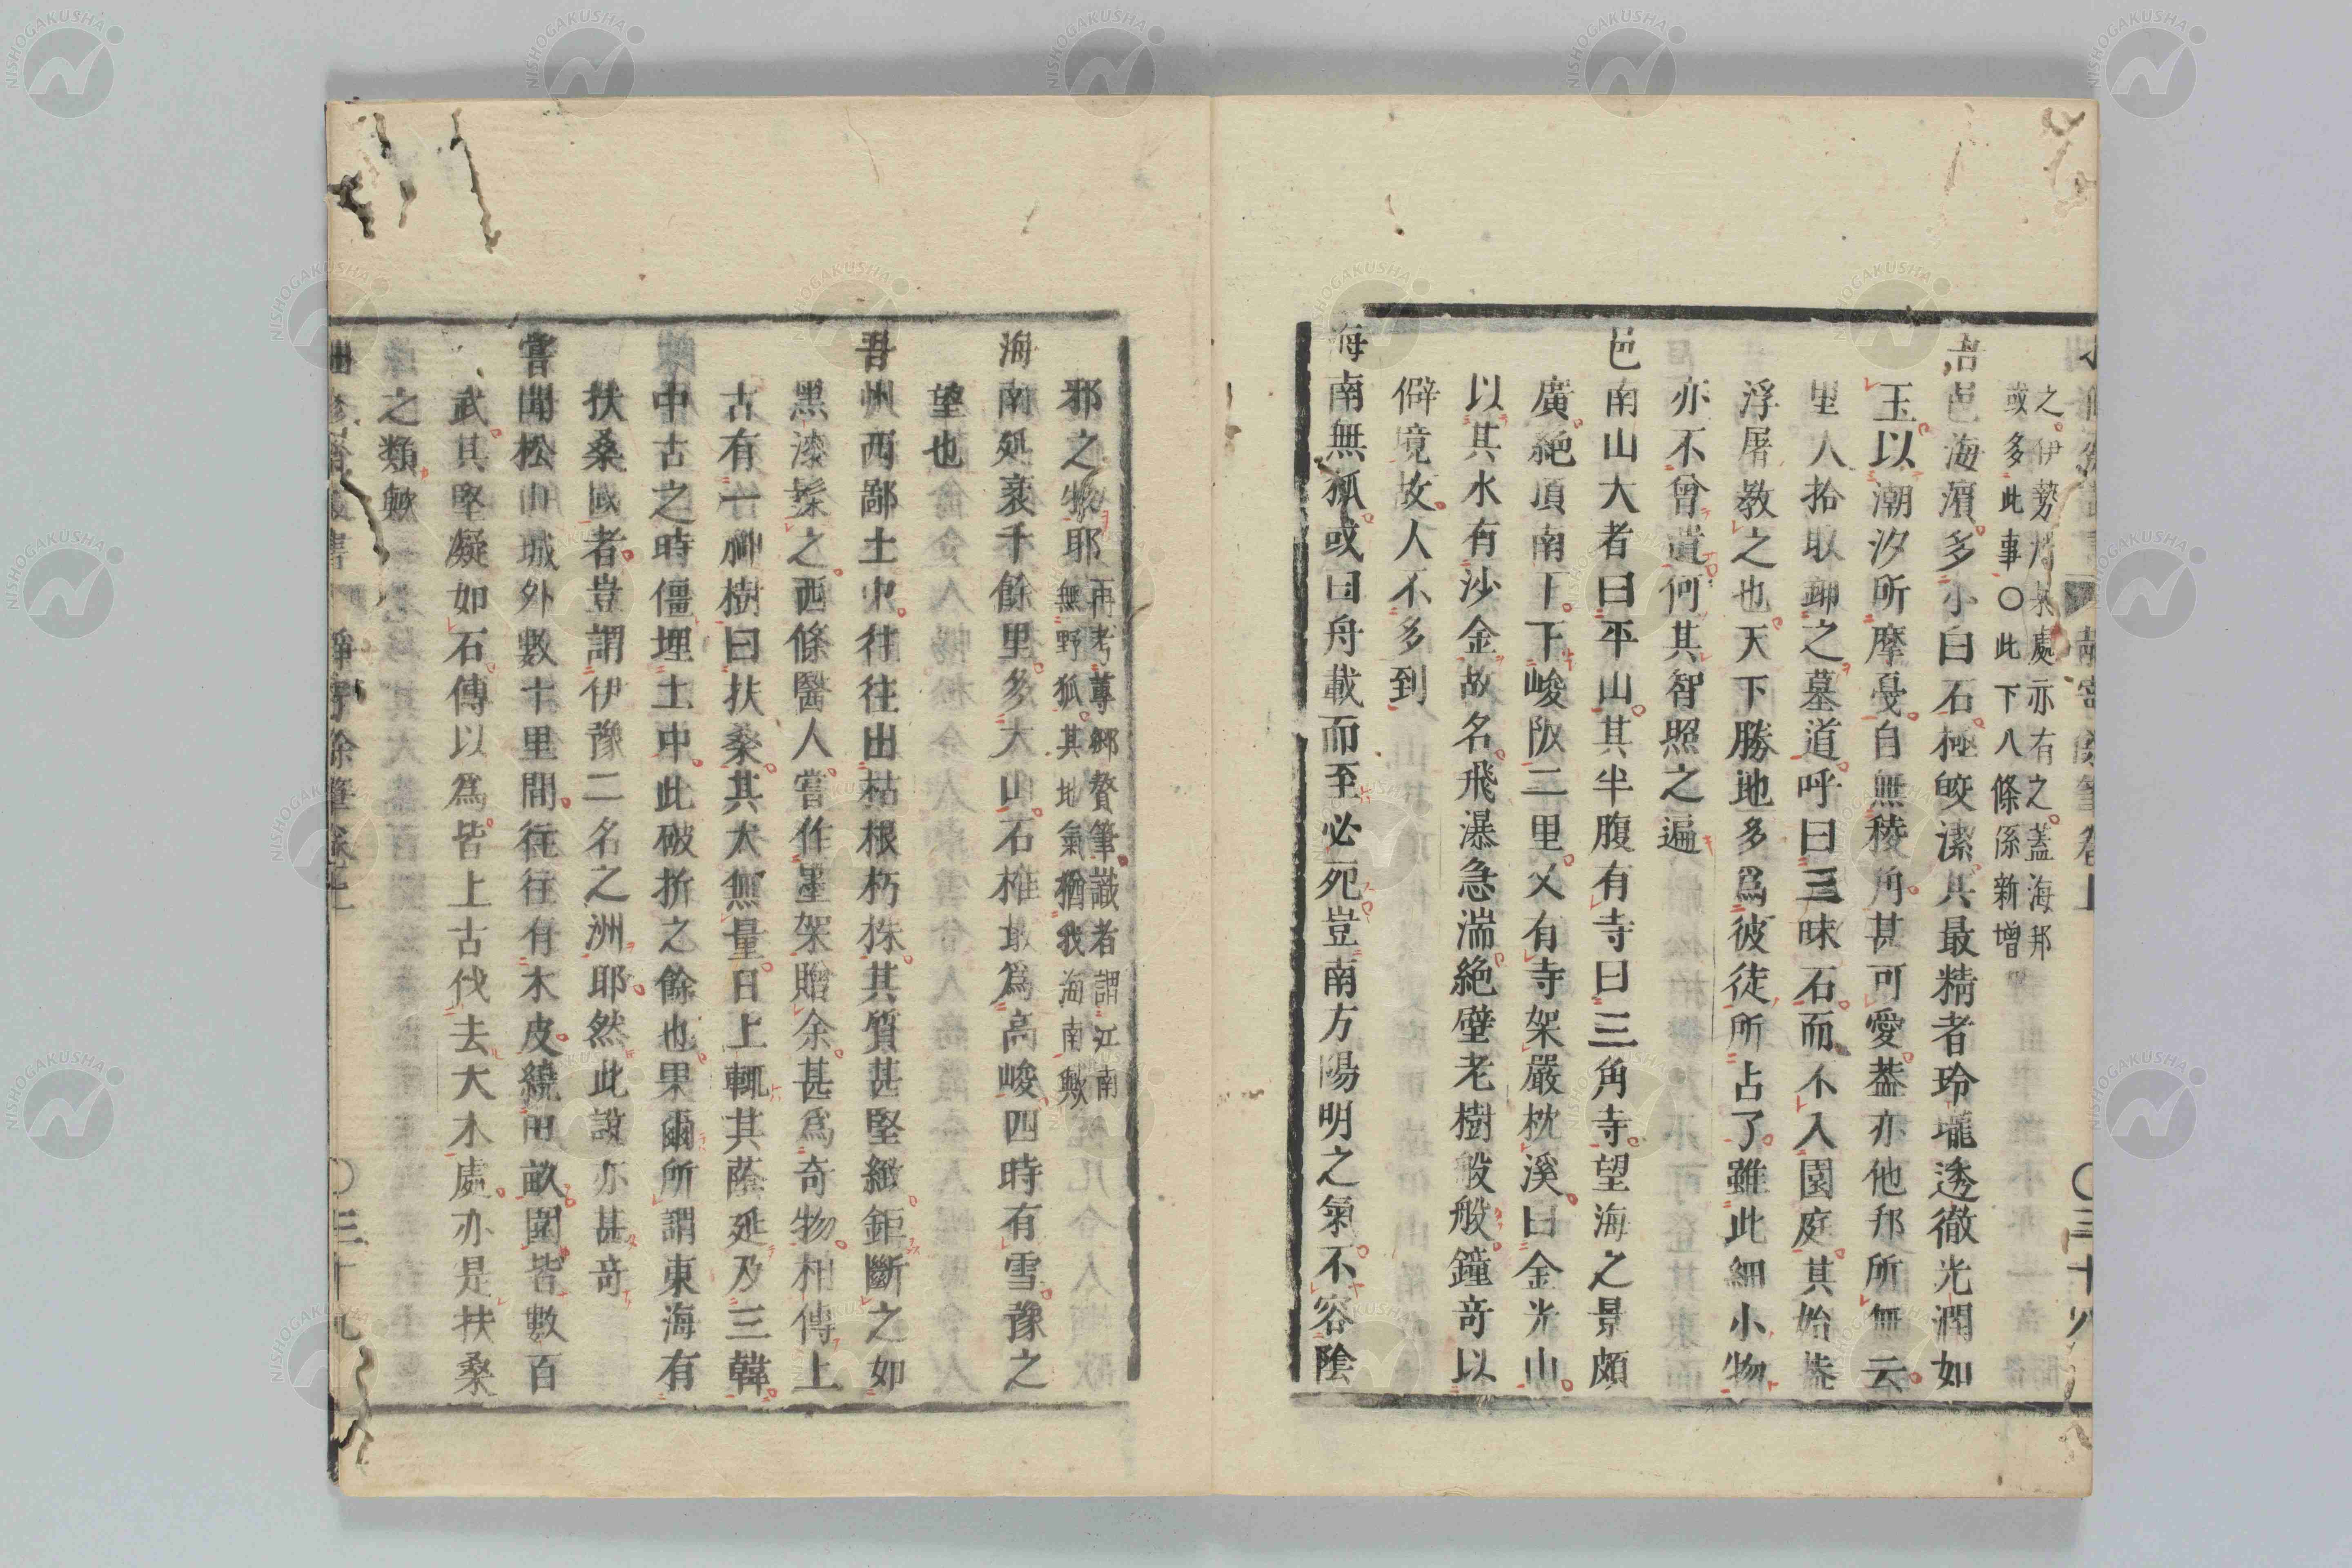 之伊勢某處亦有之蓋海邦
或多此事〇此下八條係新增
吾邑海濱多小白石極皎潔其最精者玲瓏透徹光潤如
玉以潮汐所摩戞自無稜角甚可愛葢亦他邦所無云
里人拾取鋪之墓道呼曰三昧石而不入園庭其始葢
浮屠教之也天下勝地多爲彼徒所占了雖此細小物
亦不曾遺何其智照之遍
邑南山大者曰平山其半腹有寺曰三角寺望海之景頗
廣絶頂南下下峻阪二里又有寺架嚴枕溪曰金光山
以其水有沙金故名飛瀑急湍絶壁老樹般般鐘奇以
僻境故人不多到
海南無狐或曰舟載而至必死豈南方陽明之氣不容陰
邪之物耶再考蓴鄉贅筆識者謂江南
無野狐其地氣猶我海南歟
海南延袤千餘里多大山石槌最爲高峻四時有雪豫之
望也
吾州西鄙土中往往出枯根朽株其質甚堅緻鉅斷之如
黑漆髹之西條醫人嘗作墨架贈余甚爲奇物相傳上
古有一神樹曰扶桑其大無量日上輒其蔭延及三韓
中古之時僵埋土中此破折之餘也果爾所謂東海有
扶桑國者豈謂伊豫二名之洲耶然此說亦甚奇
嘗聞松山城外數十里間往往有木皮繞田畝園皆數百
武其堅凝如石傳以爲皆上古伐去大木處亦是扶桑
之類歟